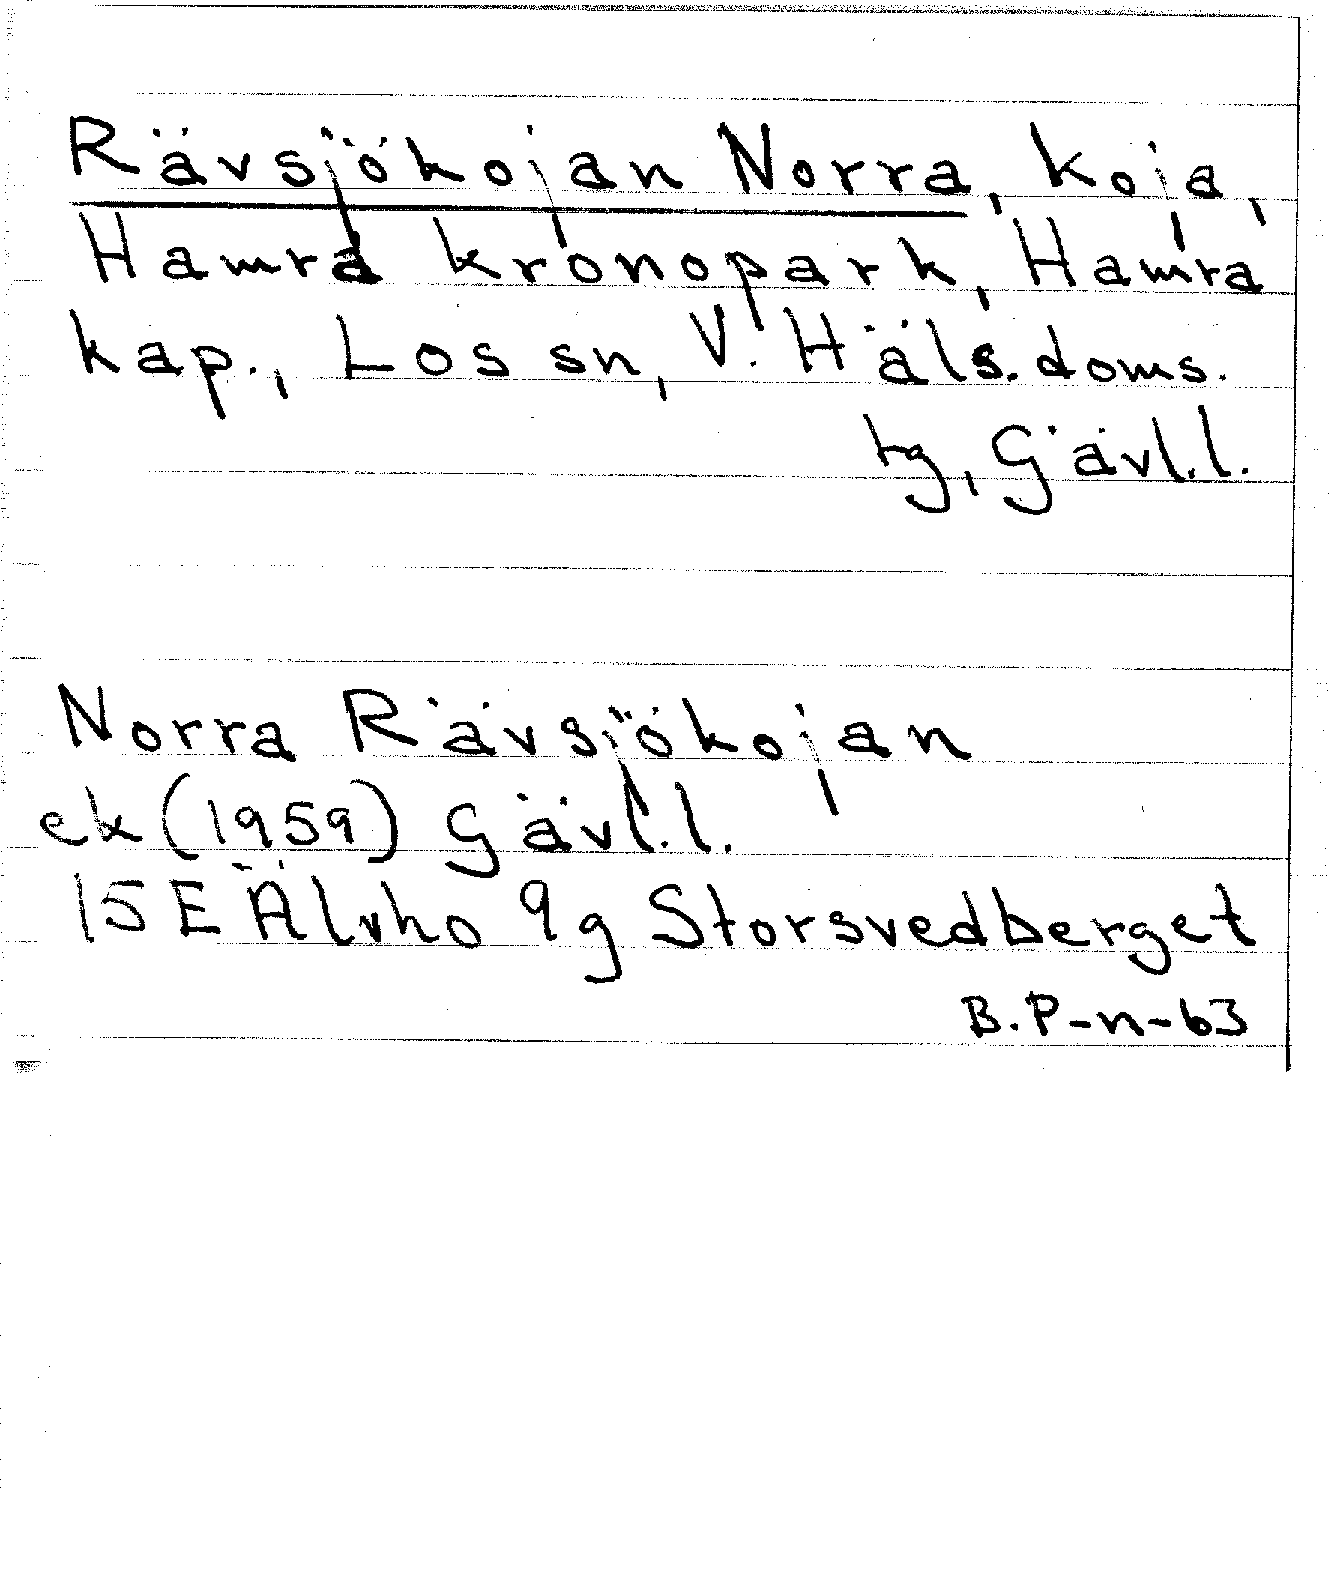 Rävsjökojan Norra, koja,
Hamra kronopark, Hamra
kap., Los sn, V. Häls. doms.
tg, Gävl.l.
Norra Rävsjökojan
ek (1959) Gävl.l.
15 E Älvho 9g Storsvedberget
B.P-n-63